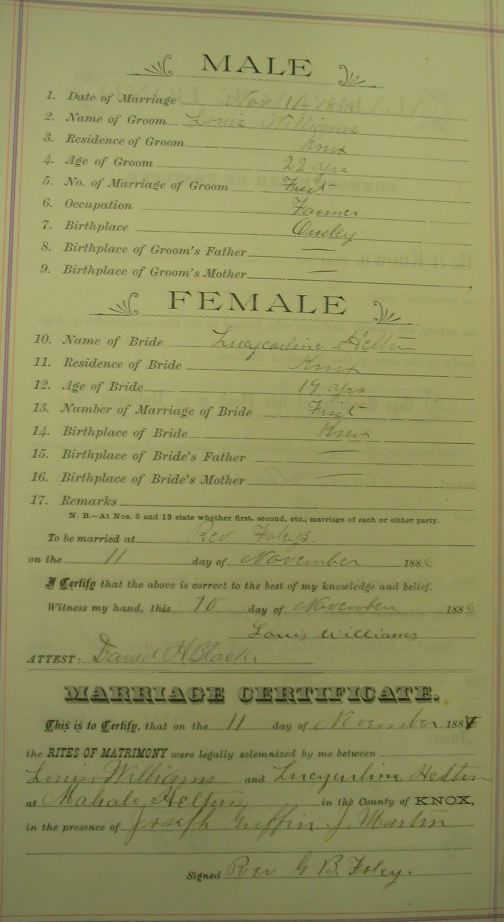 MALE
1. Date of Marriage Nov 11 - 1886
2. Name of Groom Louis Williams
3. Residence of Groom Knox
4. Age of Groom 22 yrs
5. No. of Marriage of Groom First
6. Occupation Farmer
7. Birthplace Owsley
8. Birthplace of Groom's Father
9. Birthplace of Groom's Mother —
FEMALE
10. Name of Bride Lucycarline Helton
11. Residence of Bride Knox
12. Age of Bride 19 yrs
13. Number of Marriage of Bride First
14. Birthplace of Bride Knox
15. Birthplace of Bride's Father —
16. Birthplace of Bride's Mother —
17. Remarks
N. B.—At Nos. 5 and 13 state whether first, second, etc., marriage of each or either party.
To be married at Rev Foleys.
on the 11 day of November 1886
I Certify that the above is correct to the best of my knowledge and belief.
Witness my hand, this 10 day of November 1886
Louis Williams
ATTEST: David H Black.
MARRIAGE CERTIFICATE.
This is to Certify, that on the 11 day of November 188
the RITES OF MATRIMONY were legally solemnized by me between
Williams and Helton
at Mahala Heltons in the County of KNOX,
in the presence of Joseph Griffin J. Martin
Signed Rev G B. Foley.